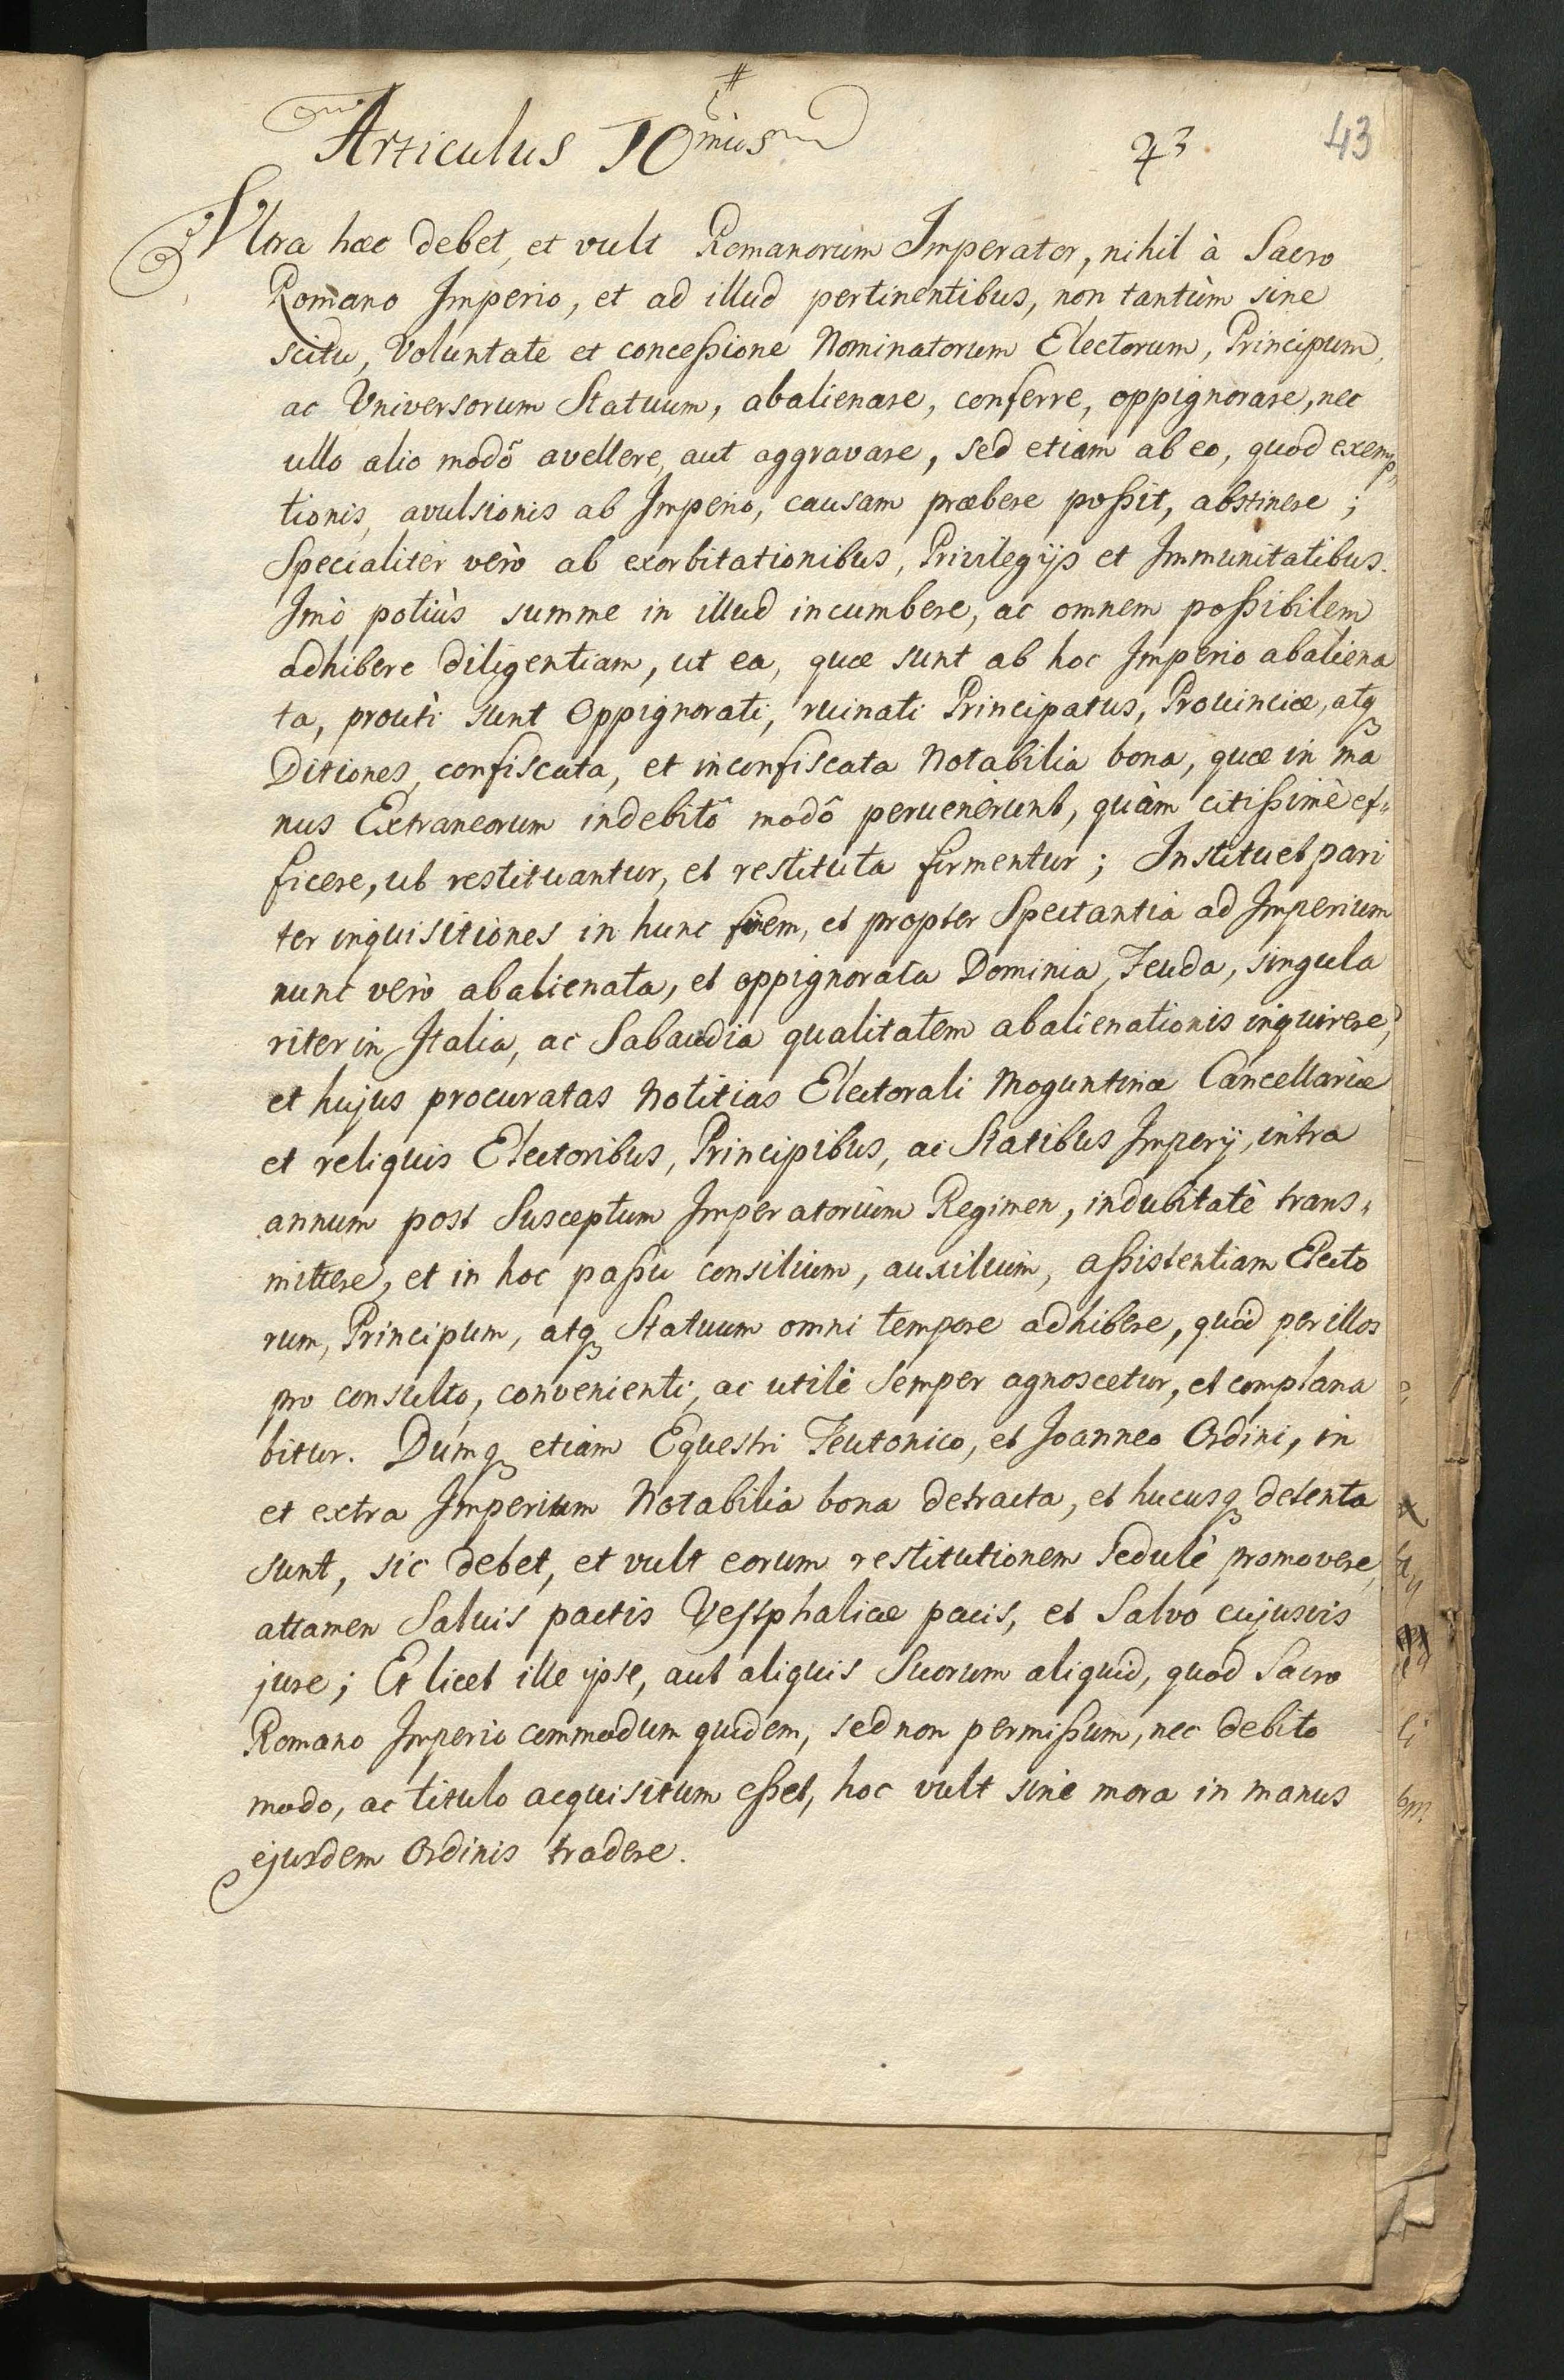 #
Articulus 10mus
43
43
Vltra hæc debet, et vult Romanorum Imperator, nihil à Sacro
Romano Imperio, et ad illud pertinentibus, non tantùm sine
scitu, Voluntate et conceßione Nominatorum Electorum, Principum,
ac Vniversorum Statuum, abalienare, conferre, oppignorare, nec
ullo alio modô avellere, aut aggravare, sed etiam ab eo, quod exemp„
tionis, avulsionis ab Imperio, causam præbere poßit, abstinere;
Specialiter verò ab exorbitationibus, Privilegijs et Immunitatibus.
Imò potiùs summe in illud incumbere, ac omnem poßibilem
adhibere diligentiam, ut ea, quæ sunt ab hoc Imperio abaliena
ta, prouti sunt Oppignorati, ruinati Principatus, Prouinciæ, atq3
Ditiones, confiscata, et inconfiscata Notabilia bona, quæ in ma
nus Extraneorum indebitô modô peruenerunt, quàm citißimè ef„
ficere, ut restituantur, et restituta firmentur; Instituet pari
ter inquisitiones in hunc finem, et propter Spectantia ad Imperium
nunc verò abalienata, et oppignorata Dominia, Feuda, singula
riter in Italia, ac Sabaudia qualitatem abalienationis inquirere,
et hujus procuratas Notitias Electorali Moguntinæ Cancellariæ
et reliquis Electoribus, Principibus, ac Statibus Imperij, intra
annum post Susceptum Imperatorium Regimen, indubitatè trans„
mittere, et in hoc paßu consilium, auxilium, aßistentiam Electo
rum, Principum, atq3 Statuum omni tempore adhibere, quod per illos
pro consulto, convenienti, ac utili semper agnoscetur, et complana
bitur. Dumq3 etiam Equestri Teutonico, et Joanneo Ordini, in
et extra Imperium Notabilia bona detracta, et hucusq3 detenta
sunt, sic debet, et vult eorum restitutionem sedulè promovere,
attamen Saluis pactis Vestphalicæ pacis, et Salvo cujusvis
jure; Et licet ille ipse, aut aliquis Suorum aliquid, quod Sacro
Romano Imperio commodum quidem, sed non permißum, nec debito
modo, ac titulo acquisitum eßet, hoc vult sine mora in manus
ejusdem Ordinis tradere.